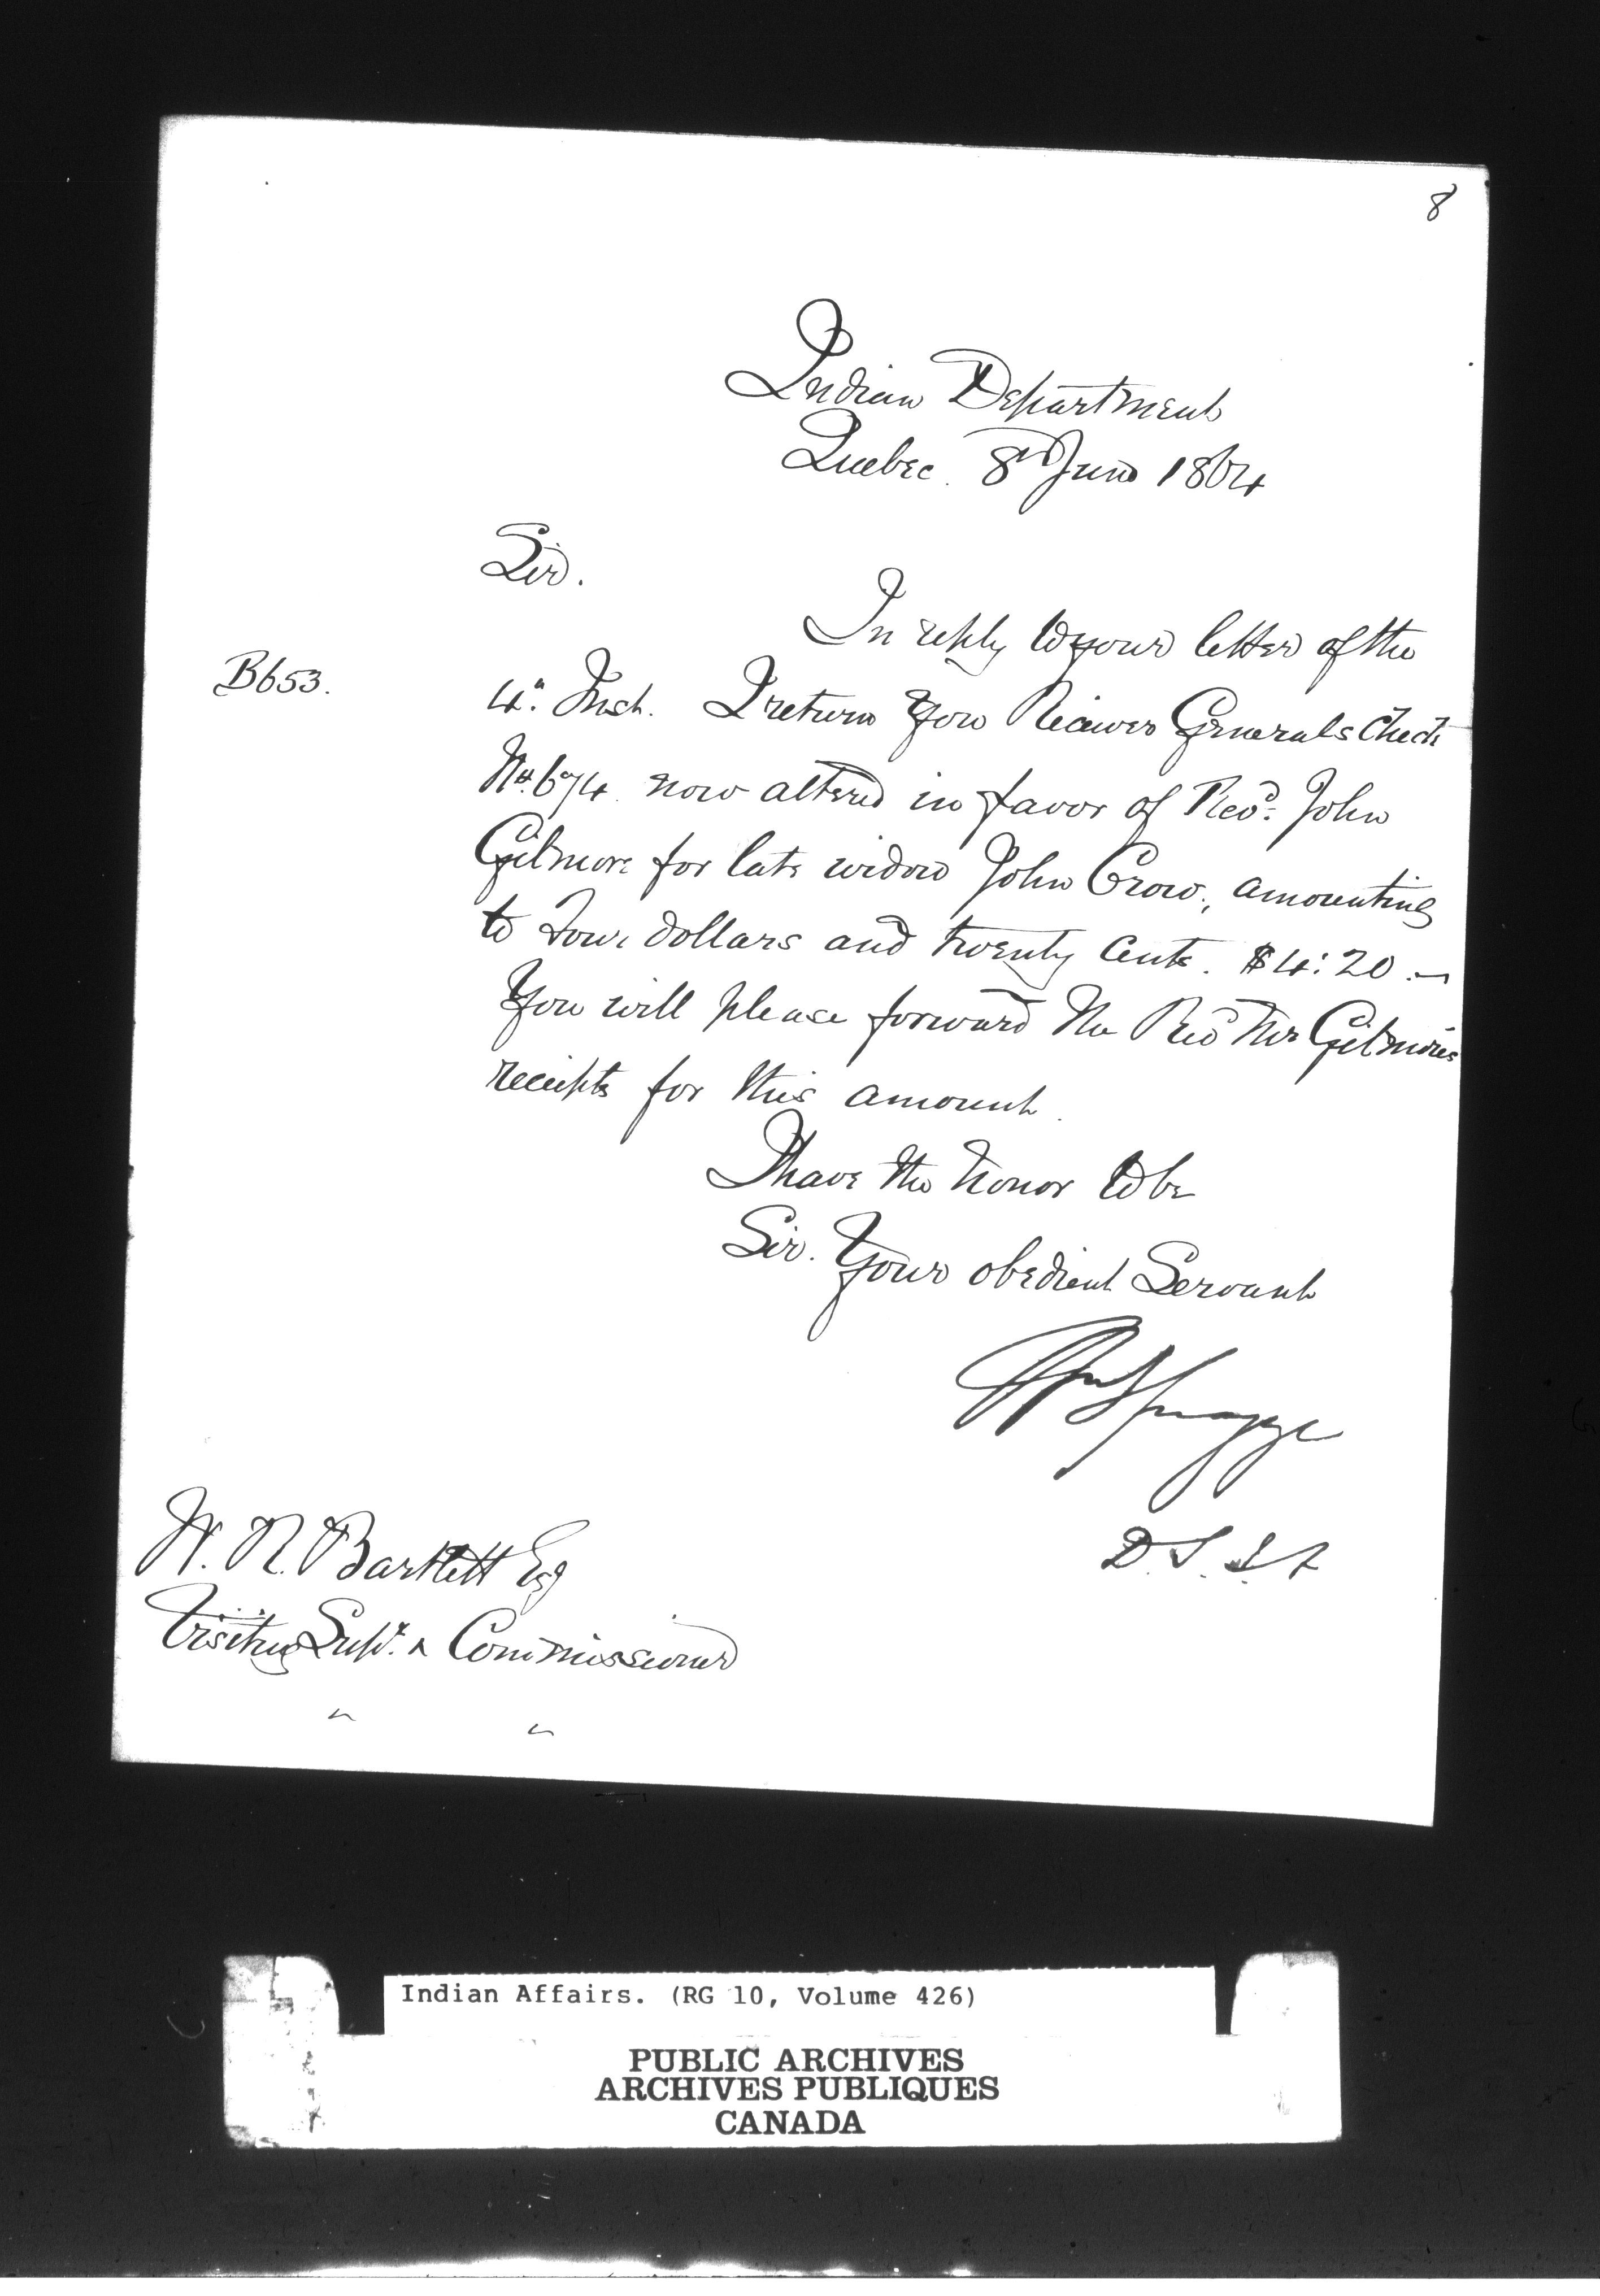 8
Indian Department
Quebec. 8th June 1864
Sir.
In reply to your letter of the
B653.
4th Inst. I return you Receiver Generals Check
No. 674 now altered in favor of Revd. John
Gilmore for late widow John Crow, amounting
to Four dollars and twenty cents. $4:20.—
You will please forward the Revd Mr Gilmores
receipts for this amount.
I have the honor to be
Sir. Your obedient Servant
Wm Spragge
D.S.I.A
W. R. Bartlett Esq
Visiting Supt. & Commissioner
" "
Indian Affairs. (RG 10, Volume 426)
PUBLIC ARCHIVES
ARCHIVES PUBLIQUES
CANADA